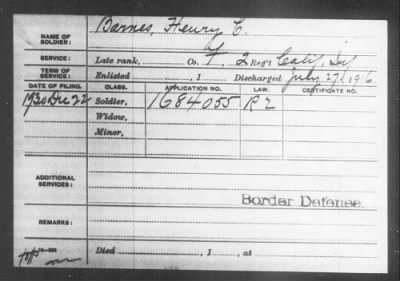 NAME OF SOLDIER: Barnes, Henry C.
SERVICE: Late rank, Co. F, 2 Reg't Calif. Inf
TERM OF SERVICE: Enlisted , 1 Discharged July 27, 1916
DATE OF FILING. CLASS. APPLICATION NO. LAW. CERTIFICATE NO.
1930 Dec 22 Soldier, 1684055
Widow,
Minor,
ADDITIONAL SERVICES:
Border Defense.
REMARKS:
Died , 1 , at